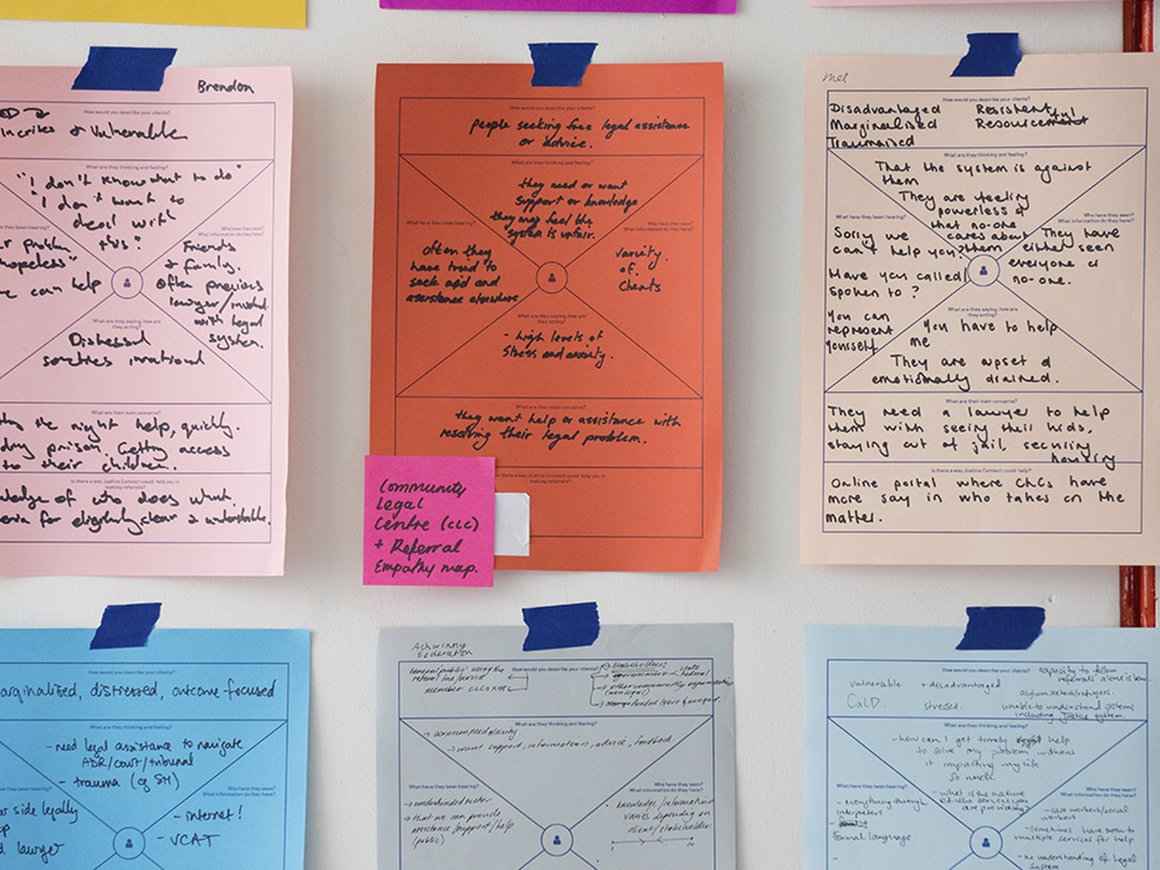 Brendon
How would you describe your clients?
& Vulnerable
What are they thinking and feeling?
"I don't know what to do"
"I don't want to
deal with
this"
What have they been hearing?
Who have they seen?
What information do they have?
problem
hopeless"
can help
Friends
& Family.
often previous
lawyer/
with legal
system.
What are they saying, how are
they acting?
Distressed
sometimes irrational
What are their main concerns?
the right help, quickly.
prison. Getting access
to their children.
Is there a way Justice Connect could help you in
making referrals?
of who does what
for eligibility clear & understandable.
How would you describe your clients?
people seeking free legal assistance
or advice.
What are they thinking and feeling?
they need or want
support or knowledge
they may feel the
system is unfair.
What have they been hearing?
often they
have tried to
seek aid and
assistance elsewhere
Who have they seen?
What information do they have?
variety
of
clients
What are they saying, how are
they acting?
- high levels of
stress and anxiety.
What are their main concerns?
they want help or assistance with
resolving their legal problem.
Is there a way Justice Connect could help you in
making referrals?
Community
Legal
Centre (CLC)
+ Referral
Empathy map.
Mel
How would you describe your clients?
Disadvantaged Resistent
Marginalised
Traumatised
What are they thinking and feeling?
That the system is against
them
They are feeling
powerless &
that no-one
cares about
them
What have they been hearing?
Sorry we
can't help you?
Have you called/
spoken to?
You can
represent
yourself
Who have they seen?
What information do they have?
They have
either seen
everyone or
no-one.
What are they saying, how are
they acting?
You have to help
me
They are upset &
emotionally drained.
What are their main concerns?
They need a lawyer to help
them with seeing their kids,
staying out of jail, securing
housing
Is there a way Justice Connect could help?
Online portal where CLCs have
more say in who takes on the
matter.
How would you describe your clients?
marginalised, distressed, outcome focused
What are they thinking and feeling?
- need legal assistance to navigate
ADR/court/tribunal
- trauma
Who have they seen?
What information do they have?
side legally
lawyer
- internet!
- VCAT
Ashwinny
Federation
How would you describe your clients?
general public using the
member CLCs
Stakeholders:
What are they thinking and feeling?
→ want support, information, advice, feedback
What have they been hearing?
→ underfunded sector
→ that we can provide
assistance/support/help
(public)
Who have they seen?
What information do they have?
knowledge/information
varies depending on
client/stakeholder.
How would you describe your clients?
capacity to follow
referrals alone is low.
vulnerable
disadvantaged
CaLD.
stressed.
asylum seekers/refugees.
unable to understand systems
including justice system.
What are they thinking and feeling?
- how can I get timely help
to solve my problem without
it impacting my life
so much
- what is the nature
of the service you
are providing?
What have they been hearing?
- everything through
interpreters
formal language
Who have they seen?
What information do they have?
- case workers/social
workers
- sometimes have been to
multiple services for help
- no understanding of legal
system